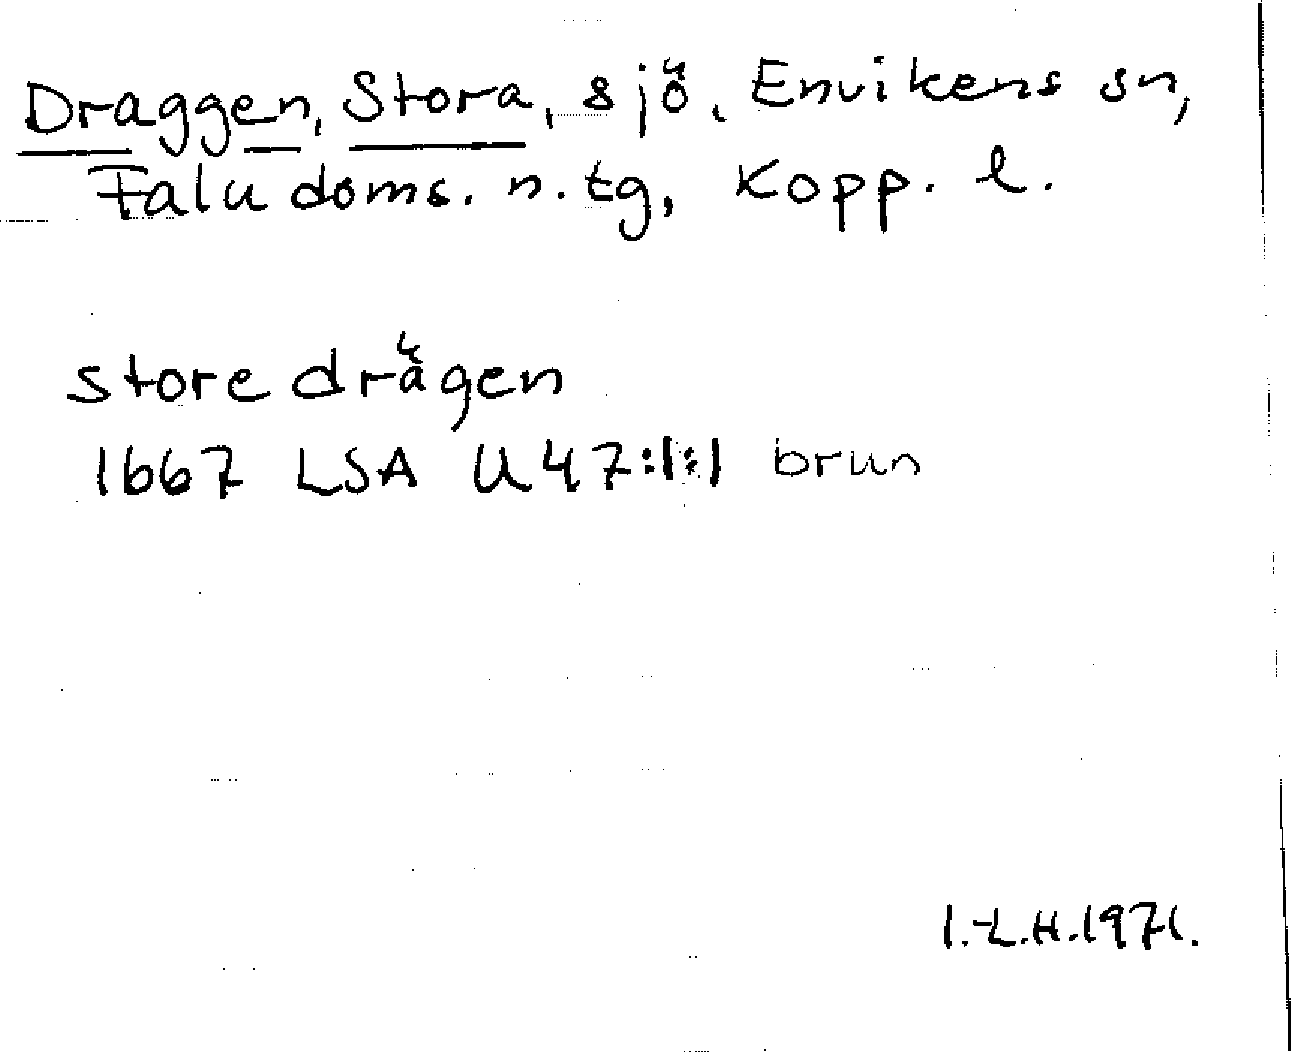 Draggen, Stora, sjö, Envikens sn,
Falu doms. n. tg, Kopp. l.
store drägen
1667 LSA U47:1:1 brun
I.-L.H.1971.